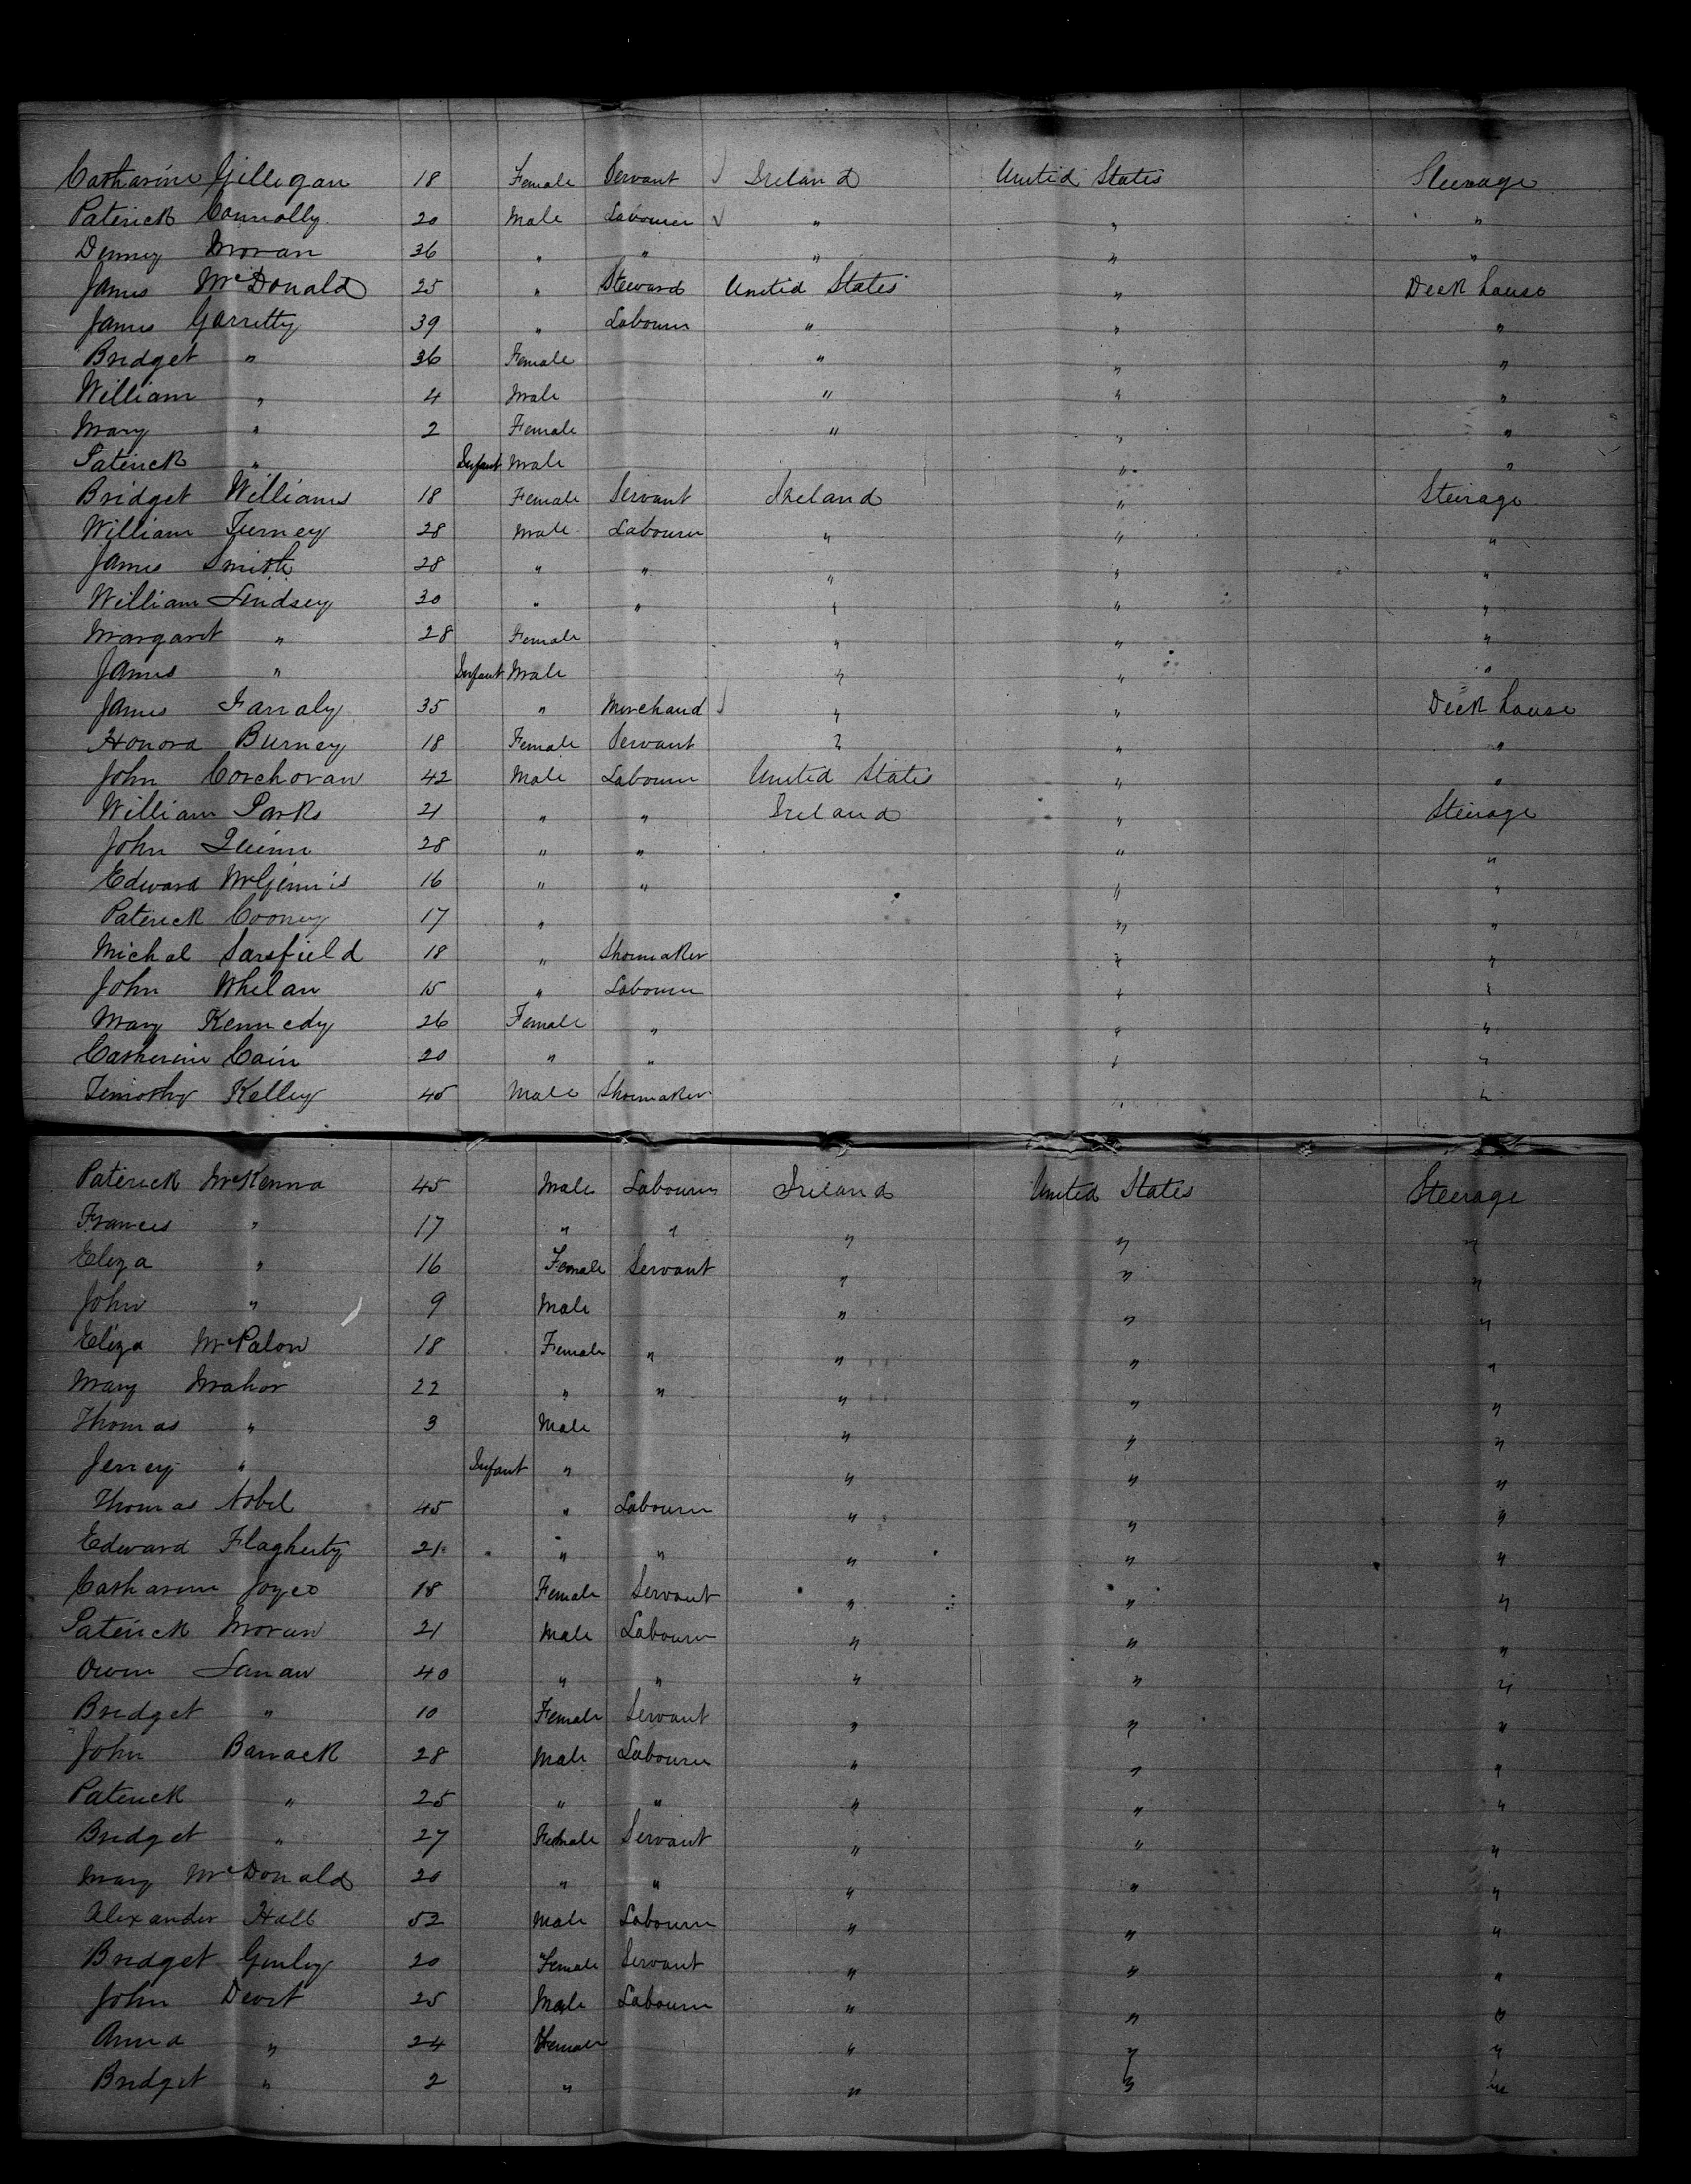 Catharine Gilligan 18 Female Servant √ Ireland United States Steerage
Paterick Connolly 20 Male Labourer √ " " "
Denney Moran 36 " " " " "
James McDonald 25 " Steward United States " Deck house
James Garretty 39 " Labourer " " "
Bridget " 36 Female " " "
William " 4 Male " " "
Mary " 2 Female " " "
Paterick " Infant Male " "
Bridget Williams 18 Female Servant Ireland " Steirage
William Turney 28 Male Labourer " " "
James Smith 28 " " " " "
William Lindsey 30 " " " " "
Margaret " 28 Female " " "
James " Infant Male " " "
James Farraly 35 " Merchand √ " " Deck house
Honora Burney 18 Female Servant " " "
John Corchoran 42 Male Labourer United States " "
William Parks 21 " " Ireland " Steirage
John Quinn 28 " " " "
Edward McGinnis 16 " " " "
Paterick Cooney 17 " " "
Michal Sarsfield 18 " Shoemaker " "
John Whelan 15 " Labourer " "
Mary Kennedy 26 Female " " "
Catherine Cain 20 " " " "
Timothy Kelley 45 Male Shoemaker " "
Paterick McKenna 45 Male Labourer Ireland United States Steerage
Frances " 17 " " " " "
Eliza " 16 Female Servant " " "
John " 9 Male " " "
Eliza McPalon 18 Female " " " "
Mary Mahor 22 " " " " "
Thomas " 3 Male " " "
Jerrey " Infant " " " "
Thomas Nobel 45 " Labourer " " "
Edward Flagherty 21 " " " " "
Catharine Joyce 18 Female Servant " " "
Paterick Moran 21 Male Labourer " " "
Owen Lanan 40 " " " " "
Bridget " 10 Female Servant " " "
John Barrack 28 Male Labourer " " "
Paterick " 25 " " " " "
Bridget " 27 Female Servant " " "
Mary McDonald 20 " " " " "
Alexander Hall 52 Male Labourer " " "
Bridget Ginley 20 Female Servant " " "
John Devit 25 Male Labourer " " "
Anna " 24 Female " " "
Bridget " 2 " " " "